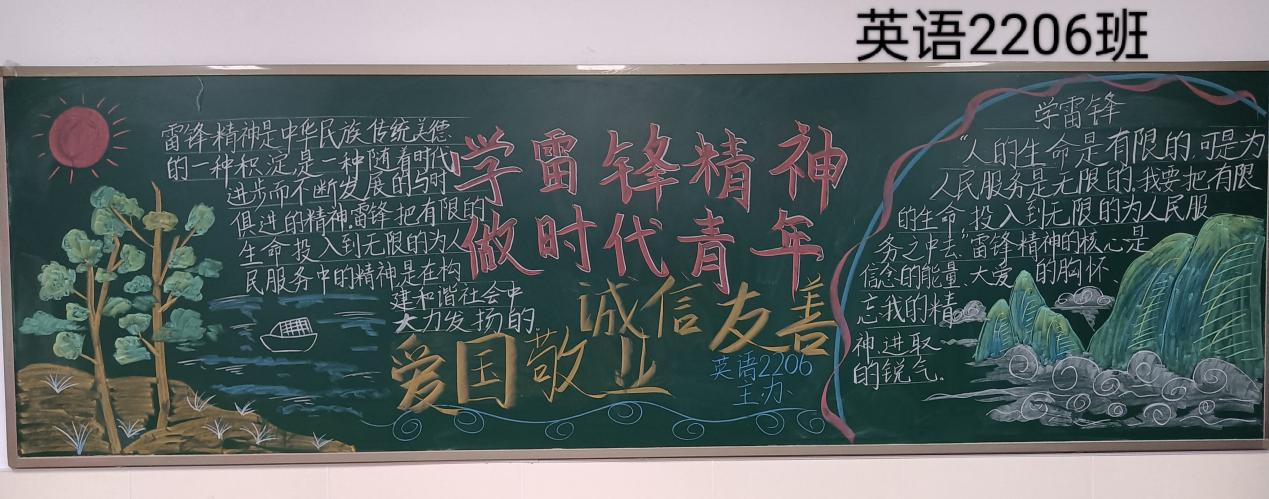 英语2206班
雷锋精神是中华民族传统美德
的一种积淀是一种随着时代
进步而不断发展的与时
俱进的精神.雷锋把有限的
生命投入到无限的为人
民服务中的精神是在构
建和谐社会中
大力发扬的.
学雷锋精神
做时代青年
诚信友善
爱国敬业
英语2206
主办
学雷锋
“人的生命是有限的.可是为
人民服务是无限的.我要把有限
的生命,投入到无限的为人民服
务之中去.”雷锋精神的核心是
信念的能量、大爱的胸怀、
忘我的精
神进取
的锐气.